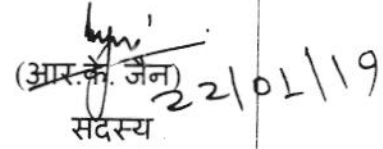 (आर.के. जैन)
22/01/19
सदस्य